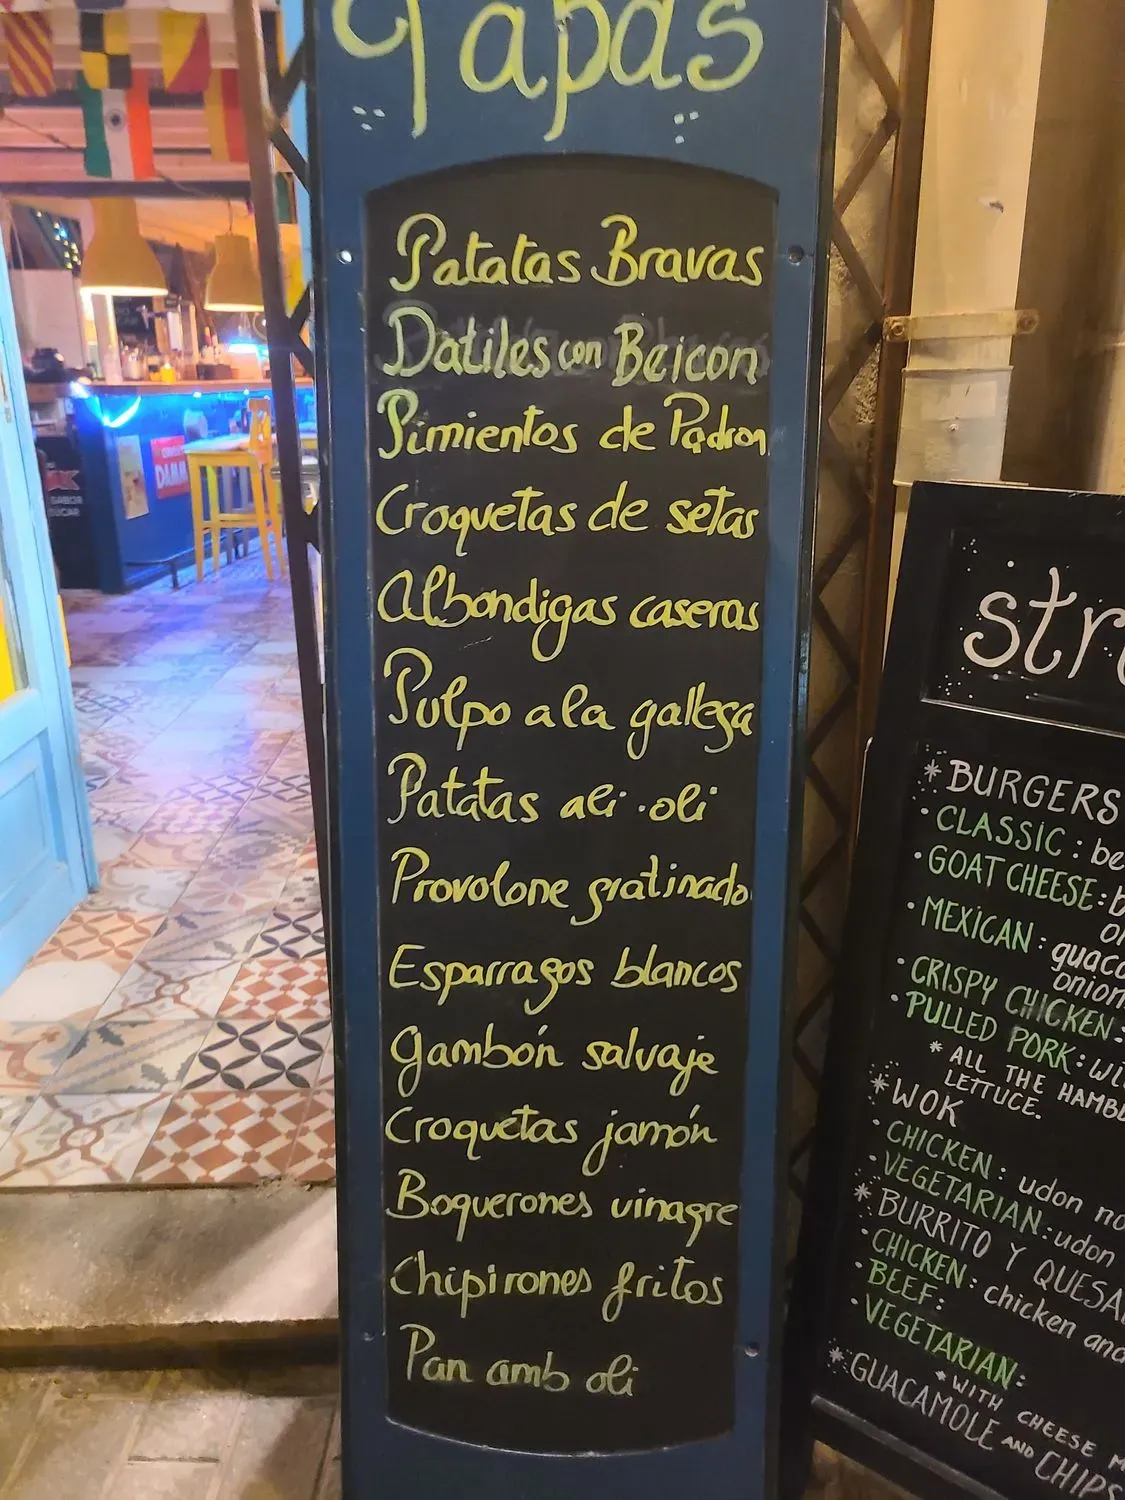 Tapas
Patatas Bravas
Datiles con Beicon
Pimientos de Padron
Croquetas de setas
Albondigas caseras
Pulpo a la gallega
Patatas ali·oli
Provolone gratinado
Esparragos blancos
Gambón salvaje
Croquetas jamón
Boquerones vinagre
Chipirones fritos
Pan amb oli
DAMM
* BURGERS
· CLASSIC:
· GOAT CHEESE:
· MEXICAN:
· CRISPY CHICKEN:
· PULLED PORK:
* ALL THE
LETTUCE.
* WOK
· CHICKEN: udon
· VEGETARIAN: udon
* BURRITO Y
· CHICKEN: chicken and
· BEEF:
· VEGETARIAN:
* WITH CHEESE
* GUACAMOLE AND CHIPS